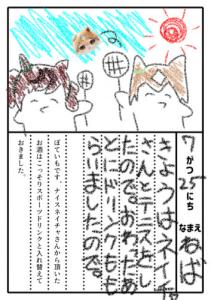 7がつ25にち なまえ ねば
きょうはネイチャ
さんとテニスをし
たので。おわったあ
とにドリンクをも
らいましたので。
ぼていもです ナイスネイチャさんから頂いた
お酒はこっそりスポーツドリンクと入れ替えて
おきました。